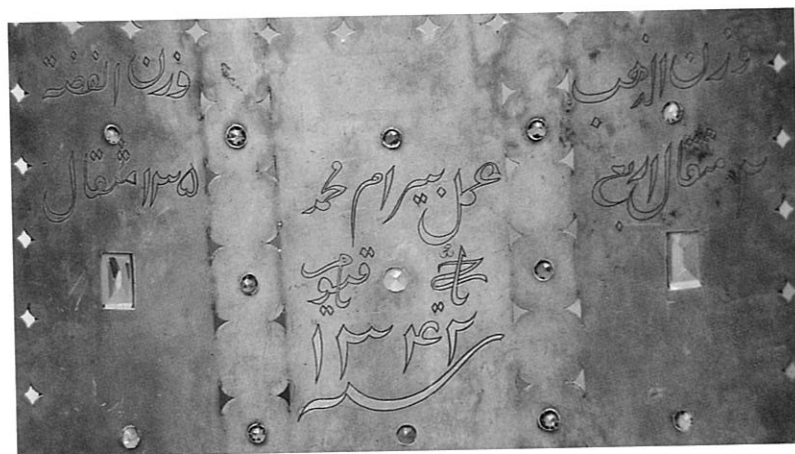 وزن الذهب
مثقال اربع
عمل بيرام محمد
يا حي
يا قيوم
سنه ١٣٤٢
وزن الفضة
١٣٥ مثقال